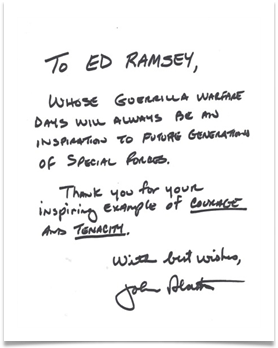 TO ED RAMSEY,
WHOSE GUERRILLA WARFARE
DAYS WILL ALWAYS BE AN
INSPIRATION TO FUTURE GENERATIONS
OF SPECIAL FORCES.
THANK YOU FOR YOUR
INSPIRING EXAMPLE OF COURAGE
AND TENACITY.
With best wishes,
John